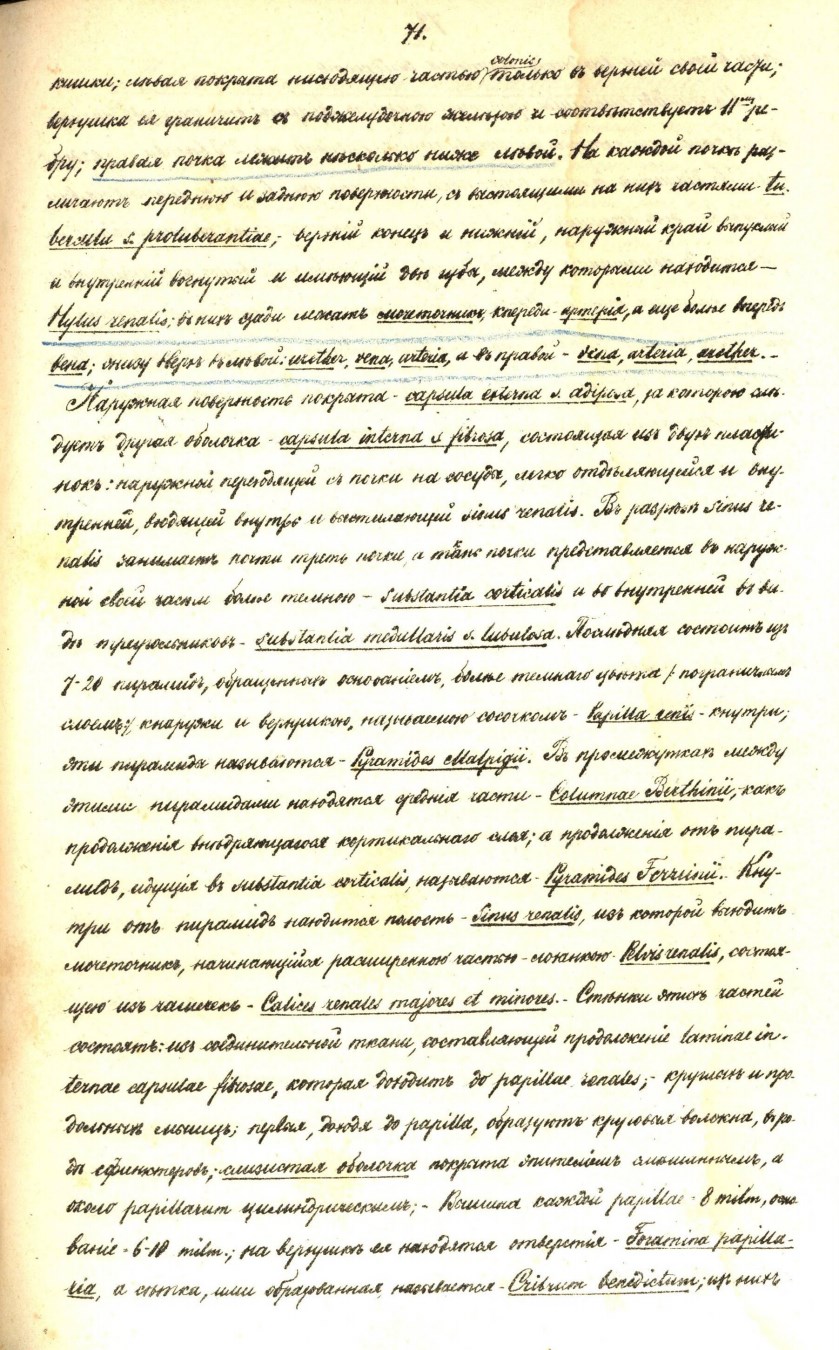 71.
кишки; лѣвая покрыта нисходящею частью colonis только въ верхней своей части;
верхушка ея граничитъ съ поджелудочною железою и соотвѣтствуетъ 11му ре-
бру; правая почка лежитъ нѣсколько ниже лѣвой. На каждой почкѣ раз-
личаютъ переднюю и заднюю поверхности, съ выстоящими на нихъ частями tu-
bercula s. protuberantiae; верхній конецъ и нижній, наружный край выпуклый
и внутренній вогнутый и имѣющій двѣ губы, между которыми находится —
Hylus renalis; въ нихъ сзади лежатъ мочеточникъ, кпереди - артерія, а еще болѣе впередъ
вена; снизу вверхъ въ лѣвой: urether, vena, arteria, а въ правой - vena, arteria, urether. -
Наружная поверхность покрыта - capsula externa s. adiposa, за которою слѣ-
дуетъ другая оболочка - capsula interna s. fibrosa, состоящая изъ двухъ пласти-
нокъ: наружной переходящей съ почки на сосуды, легко отдѣляющейся и вну-
тренней, входящей внутрь и выстилающей sinus renalis. Въ разрѣзѣ sinus re-
nalis занимаетъ почти треть почки, а ткань почки представляется въ наруж-
ной своей части болѣе темною - substantia corticalis и во внутренней въ ви-
дѣ треугольниковъ - substantia medullaris s. tubulosa. Послѣдняя состоитъ изъ
7-20 пирамидъ, обращенныхъ основаніемъ, болѣе темнаго цвѣта (пограничнымъ
слоемъ) кнаружи и верхушкою, называемою сосочкомъ - Papilla renis - кнутри;
эти пирамиды называются - Pyramides Malpigii. Въ промежуткахъ между
этими пирамидами находятся среднія части - Columnae Berthinii, - какъ
продолженія внѣдряющагося кортикальнаго слоя; а продолженія отъ пира-
мидъ, идущія въ substantia corticalis, называются - Pyramides Ferreinii. - Кну-
три отъ пирамидъ находится полость - Sinus renalis, изъ которой выходитъ
мочеточникъ, начинающійся расширенною частью - лоханкою - Pelvis renalis, состоя-
щею изъ чашечекъ - Calices renales majores et minores. - Стѣнки этихъ частей
состоятъ: изъ соединительной ткани, составляющей продолженіе laminae in-
ternae capsulae fibrosae, которая доходитъ до papillae renales; - круглыхъ и про-
дольныхъ мышцъ; первыя, доходя до papilla, образуютъ круговыя волокна, въ ро-
дѣ сфинктеровъ; слизистая оболочка покрыта эпителіемъ смѣшаннымъ, а
около papillarum цилиндрическимъ; - Вышина каждой papillae - 8 milm, осно-
ваніе - 6-10 milm.; на верхушкѣ ея находятся отверстія - Foramina papilla-
ria, а сѣтка, ими образованная, называется - Cribrum benedictum; изъ нихъ